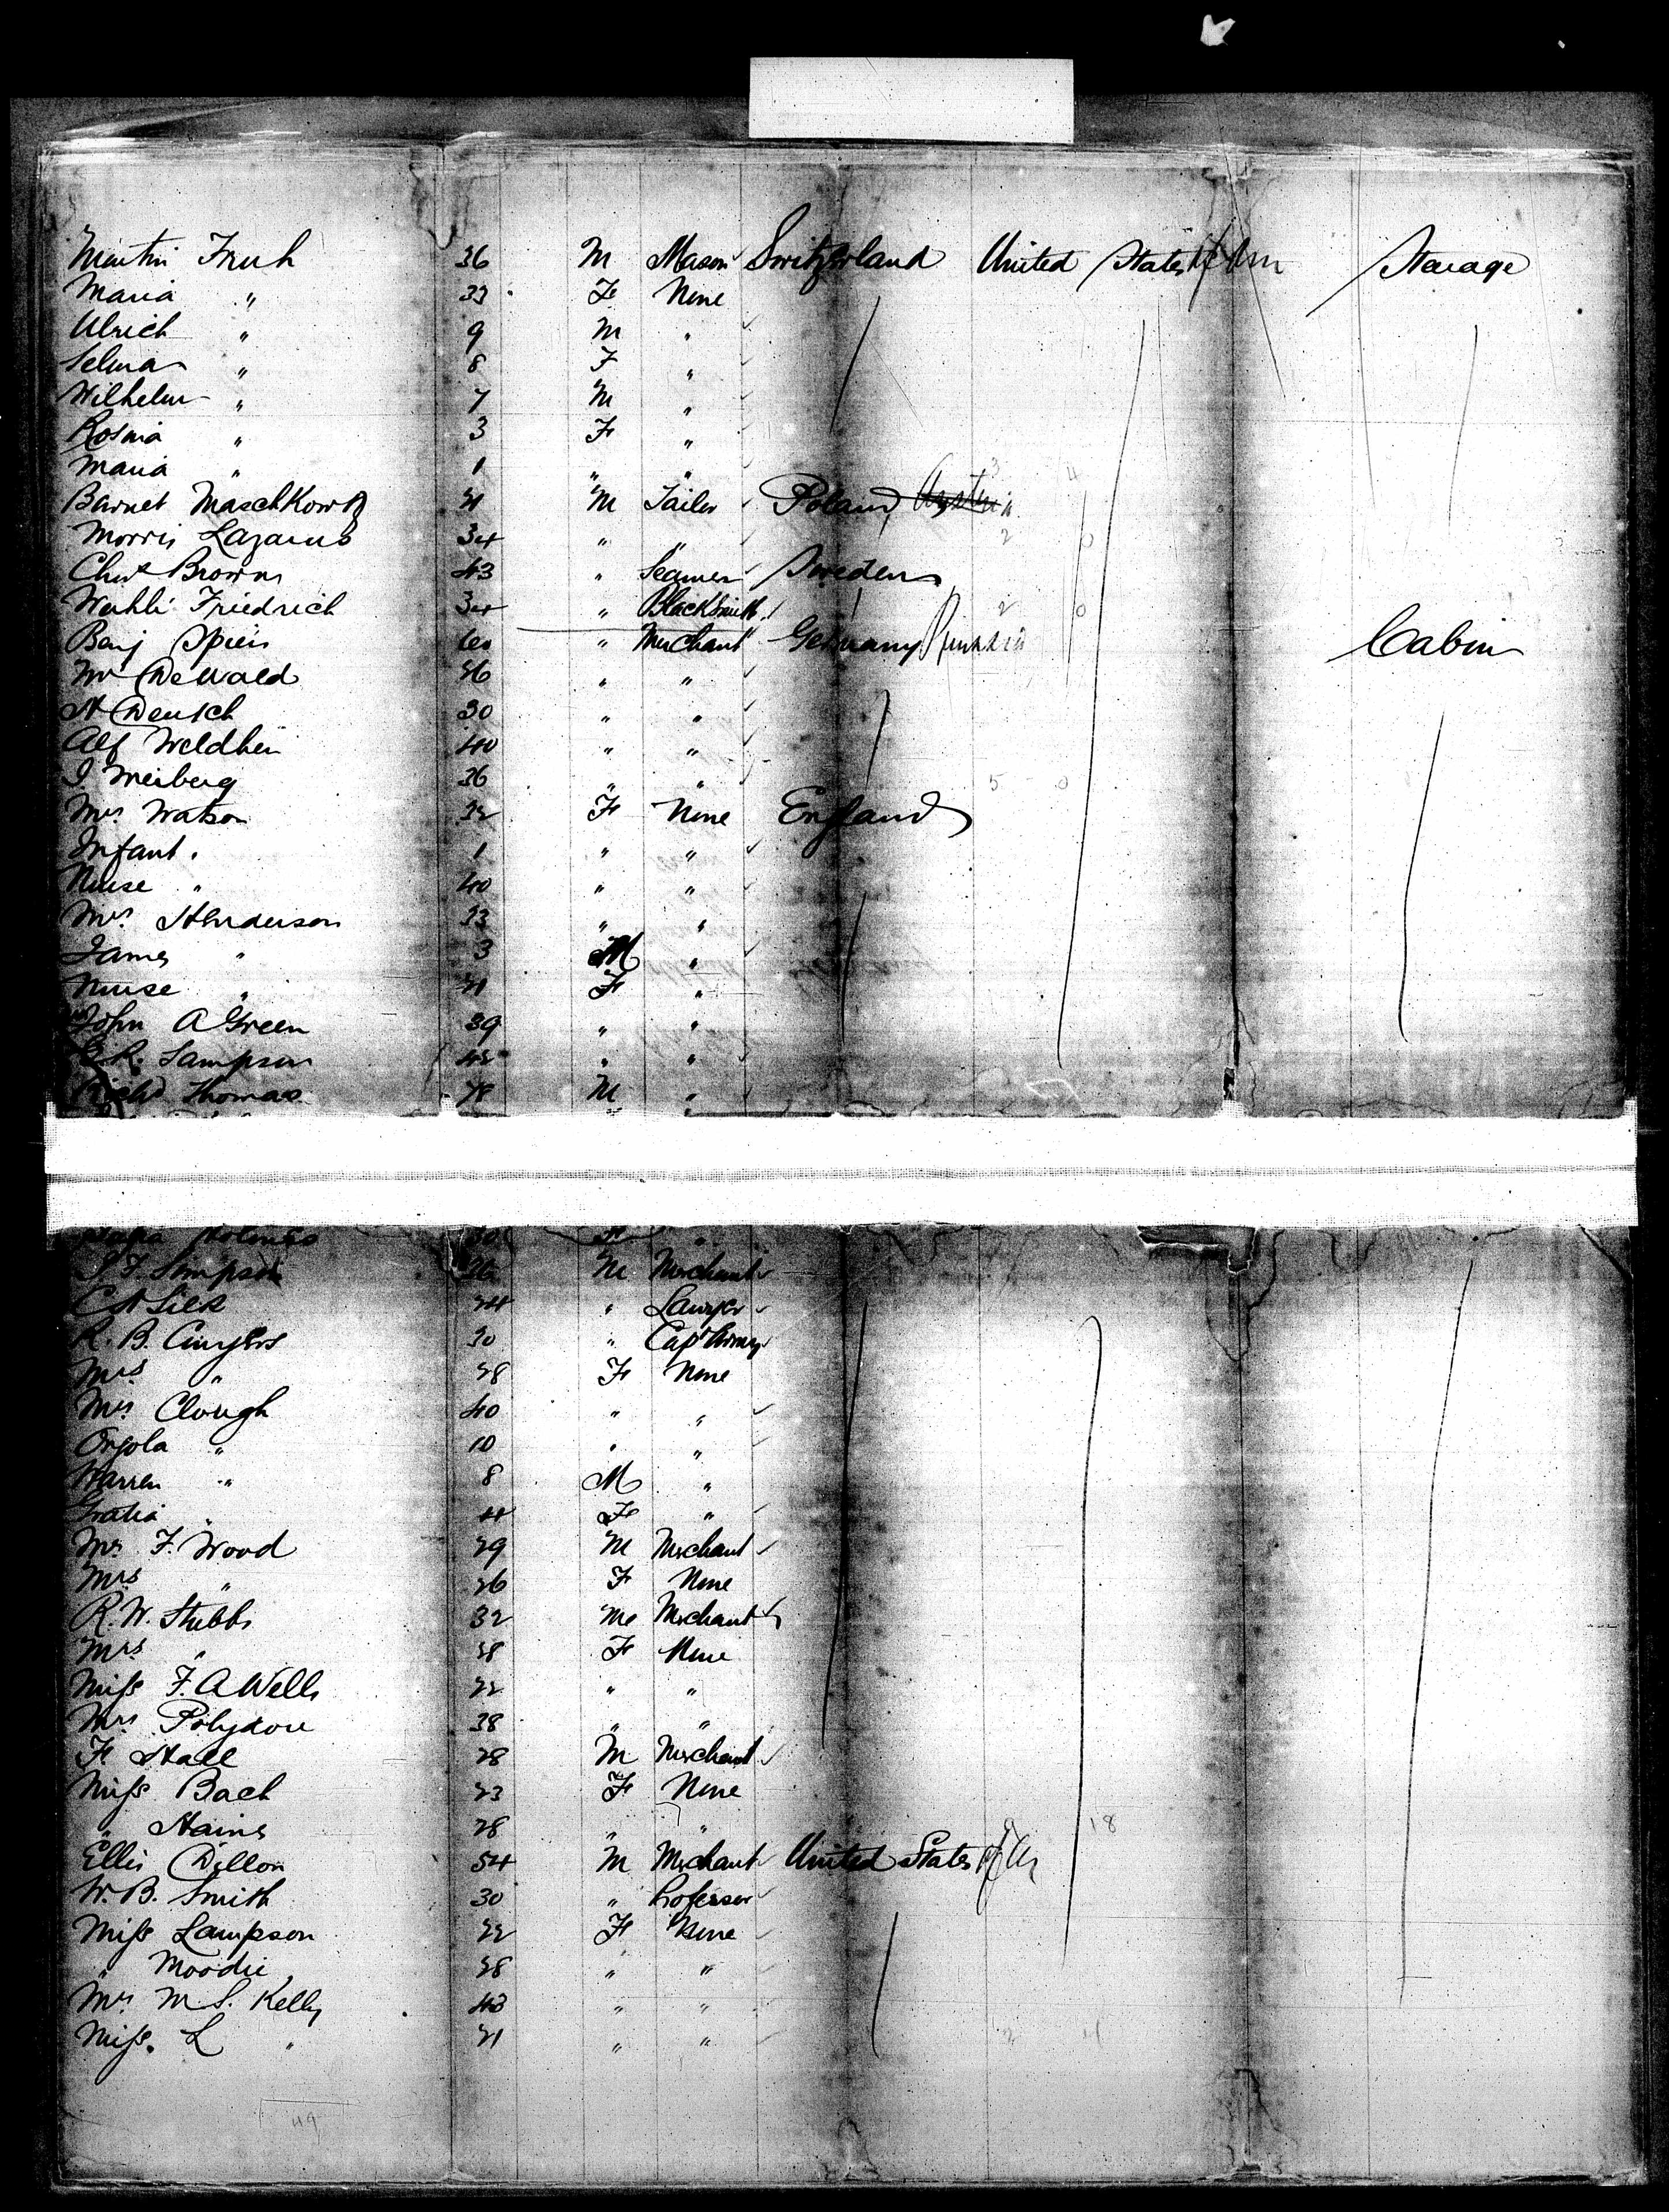 Martin Fruh 36 M Mason Switzerland United States of Am Steerage
Maria " 33 F None
Ulrich " 9 M "
Selma " 8 F "
Wilhelm " 7 M "
Rosina " 3 F "
Maria " 1 " "
Barnet Maschkowitz 21 M Tailor Poland Austria
Morris Lazarus 34 " "
Chist Brown 43 " Seaman Sweden
Wahli Friedrich 34 " Blacksmith
Benj Spiers 60 " Merchant Germany Prussia Cabin
Mr DeWald 26 " "
A Deutsch 30 " "
Alf Weldhen 40 " "
I. Weiberg 36 " "
Mrs. Watson 32 F None England
Infant " 1 " "
Nurse " 40 " "
Mrs. Henderson 33 " "
James " 3 M "
Nurse " 21 F "
John A Green 39 " "
R. Sampson 42 " "
Richd Thomas 78 M "
Holmes 30 F "
J. F. Simpson 36 M Merchant
C A Silk 24 " Lawyer
R. B. 30 " Capt Army
Mrs " 28 F None
Mrs Clough 40 " "
Orgola " 10 " "
Warren " 8 M "
Gratia " 4 F "
Mr F. Wood 29 M Merchant
Mrs " 26 F None
R. W. Stubbs 32 M Merchant
Mrs " 28 F None
Miss F. A Wells 22 " "
Mrs Polydore 38 " "
F Hall 28 M Merchant
Miss Bach 23 F None
" Hains 28 " " 18
Ellis Dillon 54 M Merchant United States of Am
W. B. Smith 30 " Professor
Miss Lampson 22 F None
" Moodie 28 " "
Mrs M S. Kelly 43 " "
Miss. L " 21 " "
49